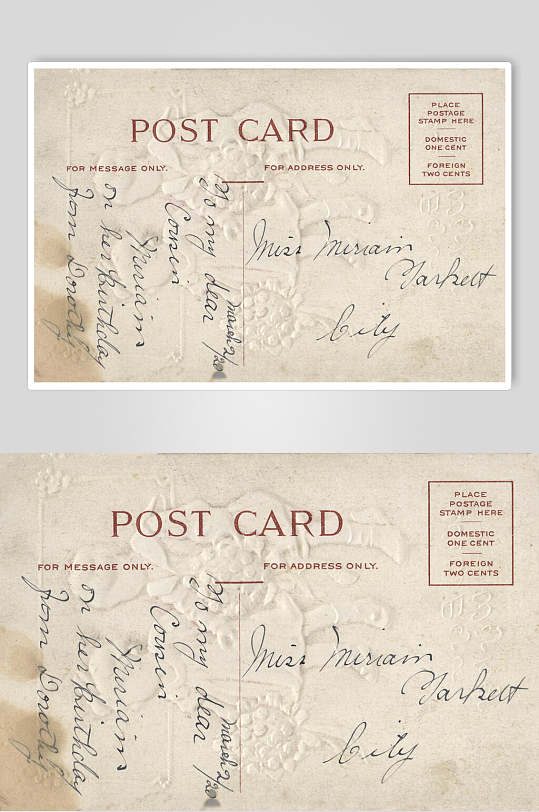 POST CARD
PLACE
POSTAGE
STAMP HERE
DOMESTIC
ONE CENT
FOREIGN
TWO CENTS
FOR MESSAGE ONLY.
FOR ADDRESS ONLY.
March 2/20
To my dear
Cousin
Miriam
on her birthday
from Dorothy
Miss Miriam
City
POST CARD
PLACE
POSTAGE
STAMP HERE
DOMESTIC
ONE CENT
FOREIGN
TWO CENTS
FOR MESSAGE ONLY.
FOR ADDRESS ONLY.
March 2/20
To my dear
Cousin
Miriam
on her birthday
from Dorothy
Miss Miriam
City